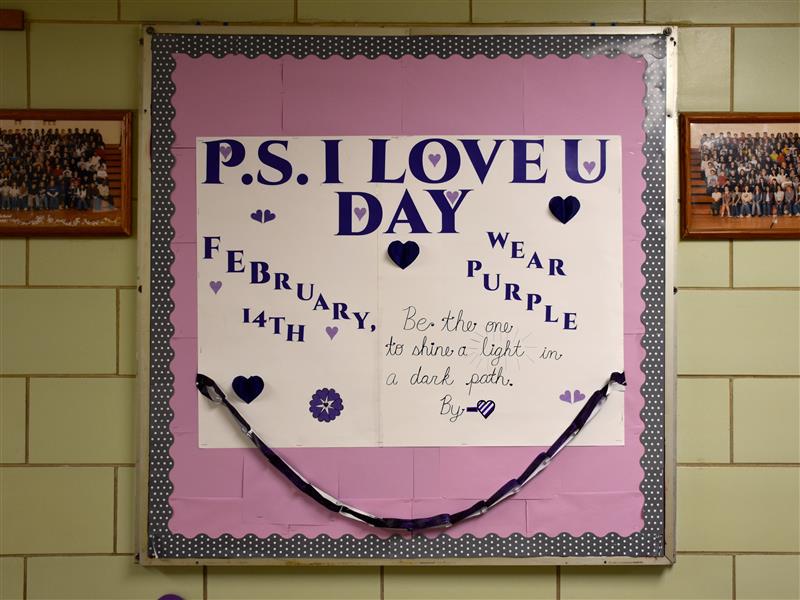 P.S. I LOVE U
DAY
FEBRUARY,
14TH
WEAR
PURPLE
Be the one
to shine a light in
a dark path.
By